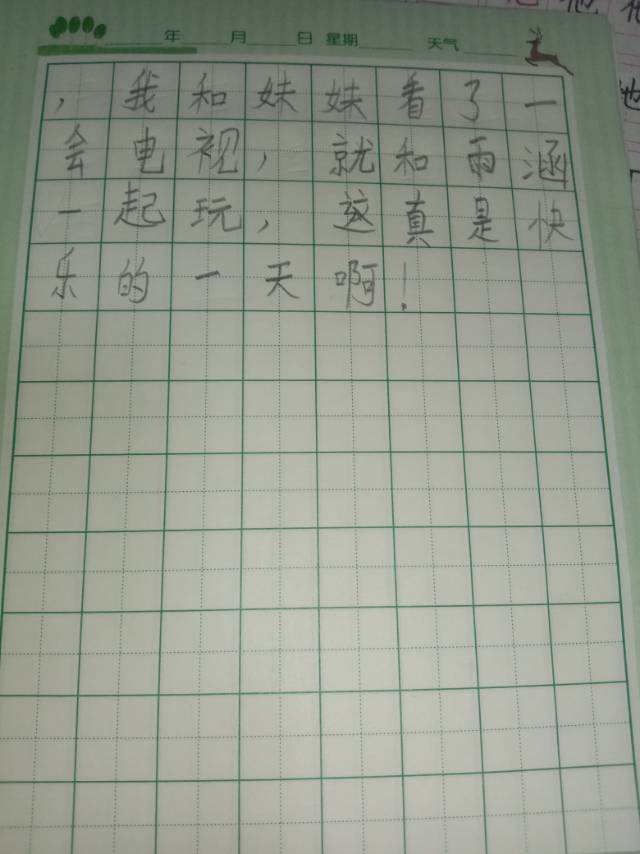 年 月 日 星期 天气
，我和妹妹看了一
会电视，就和雨涵
一起玩，这真是快
乐的一天啊！